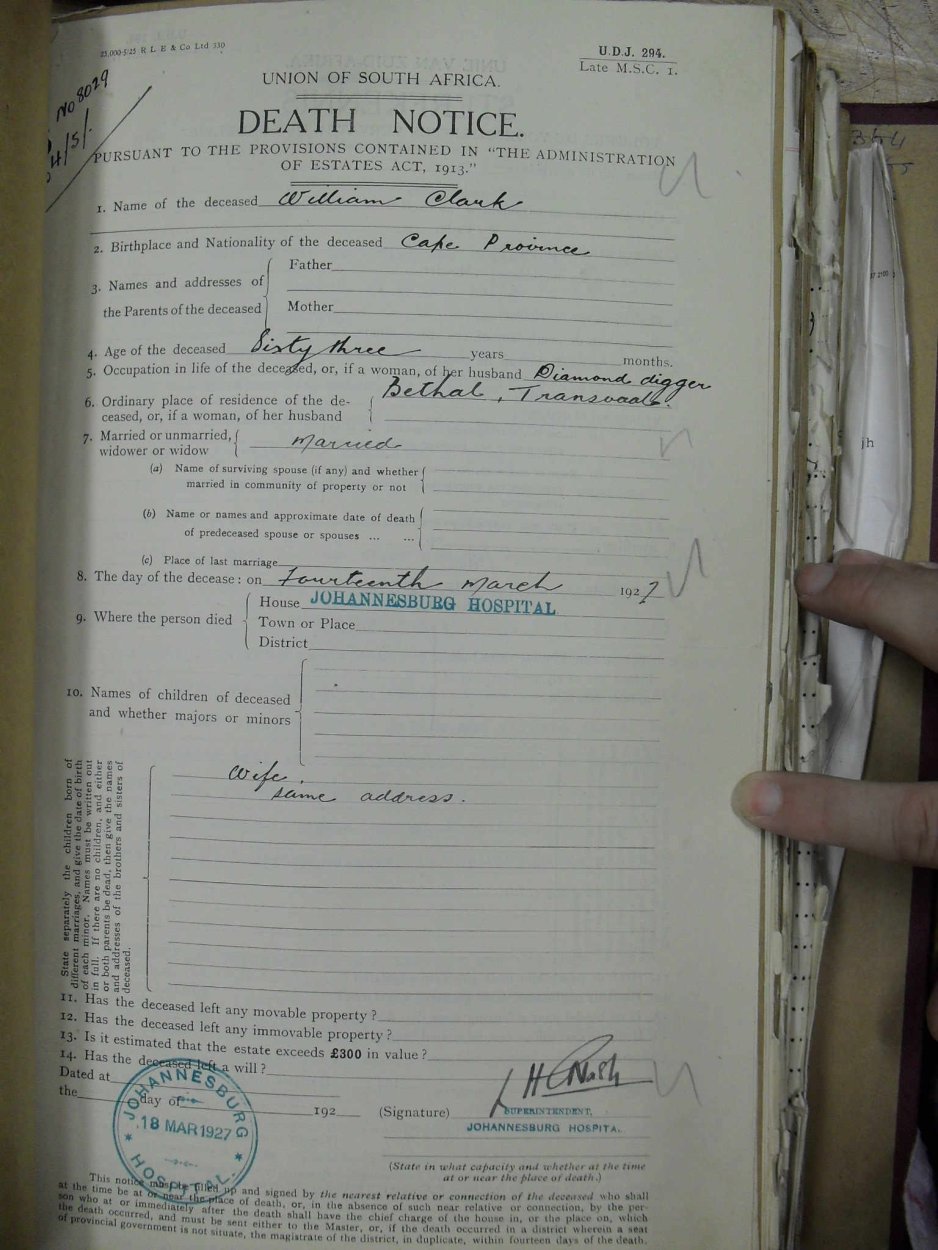 25,000-5/25 R L E & Co Ltd 330
U.D.J. 294.
Late M.S.C. 1.
No 8029
4/5/-
UNION OF SOUTH AFRICA.
DEATH NOTICE.
PURSUANT TO THE PROVISIONS CONTAINED IN "THE ADMINISTRATION
OF ESTATES ACT, 1913."
1. Name of the deceased William Clark
2. Birthplace and Nationality of the deceased Cape Province
3. Names and addresses of the Parents of the deceased
Father
Mother
4. Age of the deceased Sixty three years months.
5. Occupation in life of the deceased, or, if a woman, of her husband Diamond digger
6. Ordinary place of residence of the de-
ceased, or, if a woman, of her husband
Bethal, Transvaal.
7. Married or unmarried,
widower or widow
Married
(a) Name of surviving spouse (if any) and whether
married in community of property or not
(b) Name or names and approximate date of death
of predeceased spouse or spouses ... ...
(c) Place of last marriage
8. The day of the decease: on Fourteenth March 1927
9. Where the person died
House JOHANNESBURG HOSPITAL
Town or Place
District
10. Names of children of deceased
and whether majors or minors
State separately the children born of
different marriages, and give the date of birth
of each minor. Names must be written out
in full. If there are no children, and either
or both parents be dead, then give the names
and addresses of the brothers and sisters of
deceased.
Wife.
same address.
11. Has the deceased left any movable property?
12. Has the deceased left any immovable property?
13. Is it estimated that the estate exceeds £300 in value?
14. Has the deceased left a will?
Dated at
the day of 192
JOHANNESBURG
18 MAR 1927
HOSPITAL.
(Signature)
SUPERINTENDENT,
JOHANNESBURG HOSPITAL.
(State in what capacity and whether at the time
at or near the place of death.)
This notice must be filled up and signed by the nearest relative or connection of the deceased who shall
at the time be at or near the place of death, or, in the absence of such near relative or connection, by the per-
son who at or immediately after the death shall have the chief charge of the house in, or the place on, which
the death occurred, and must be sent either to the Master, or, if the death occurred in a district wherein a seat
of provincial government is not situate, the magistrate of the district, in duplicate, within fourteen days of the death.
jh